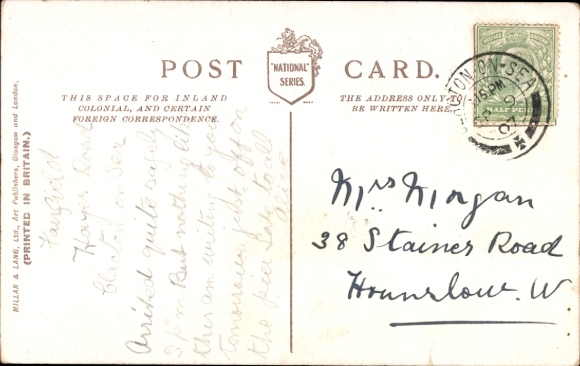 POST CARD.
"NATIONAL"
SERIES.
THIS SPACE FOR INLAND
COLONIAL, AND CERTAIN
FOREIGN CORRESPONDENCE.
THE ADDRESS ONLY
BE WRITTEN HERE
MILLAR & LANG, Ltd., Art Publishers, Glasgow and London.
(PRINTED IN BRITAIN.)
Fairfield
Hayes Road
Clacton on sea
Arrived quite safely
But nothing like
this am writing to you
tomorrow just off on
the pier Love to all
HALF PENNY
CLACTON-ON-SEA
07
Mrs Morgan
38 Staines Road
Hounslow. W.